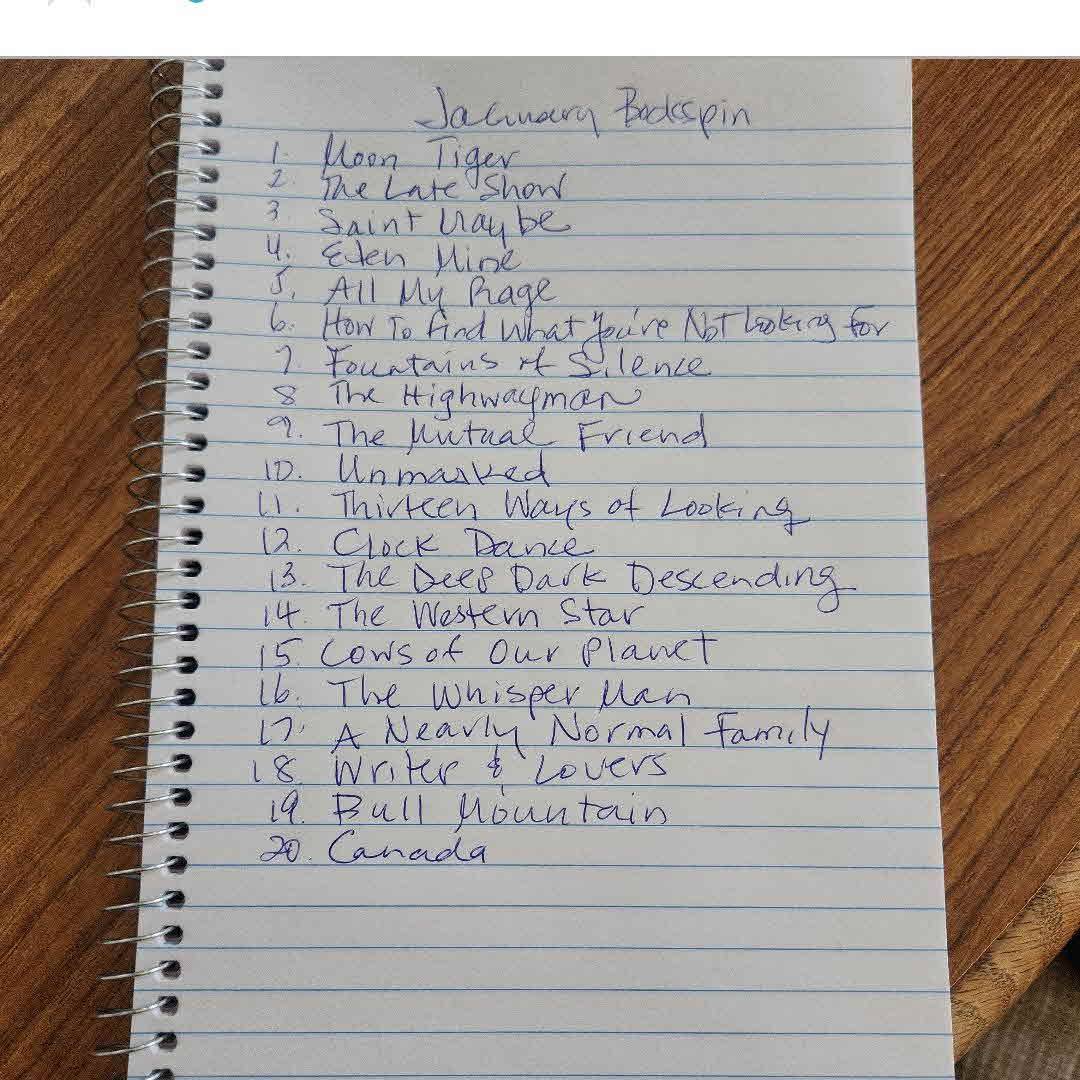 January Bookspin
1. Moon Tiger
2. The Late Show
3 Saint Maybe
4. Eden Mine
5. All My Rage
6. How To Find What You're Not Looking For
7. Fountains of Silence
8 The Highwayman
9. The Mutual Friend
10. Unmasked
11. Thirteen Ways of Looking
12. Clock Dance
13. The Deep Dark Descending
14. The Western Star
15 Cows of Our Planet
16. The Whisper Man
17. A Nearly Normal Family
18. Writer & Lovers
19. Bull Mountain
20. Canada